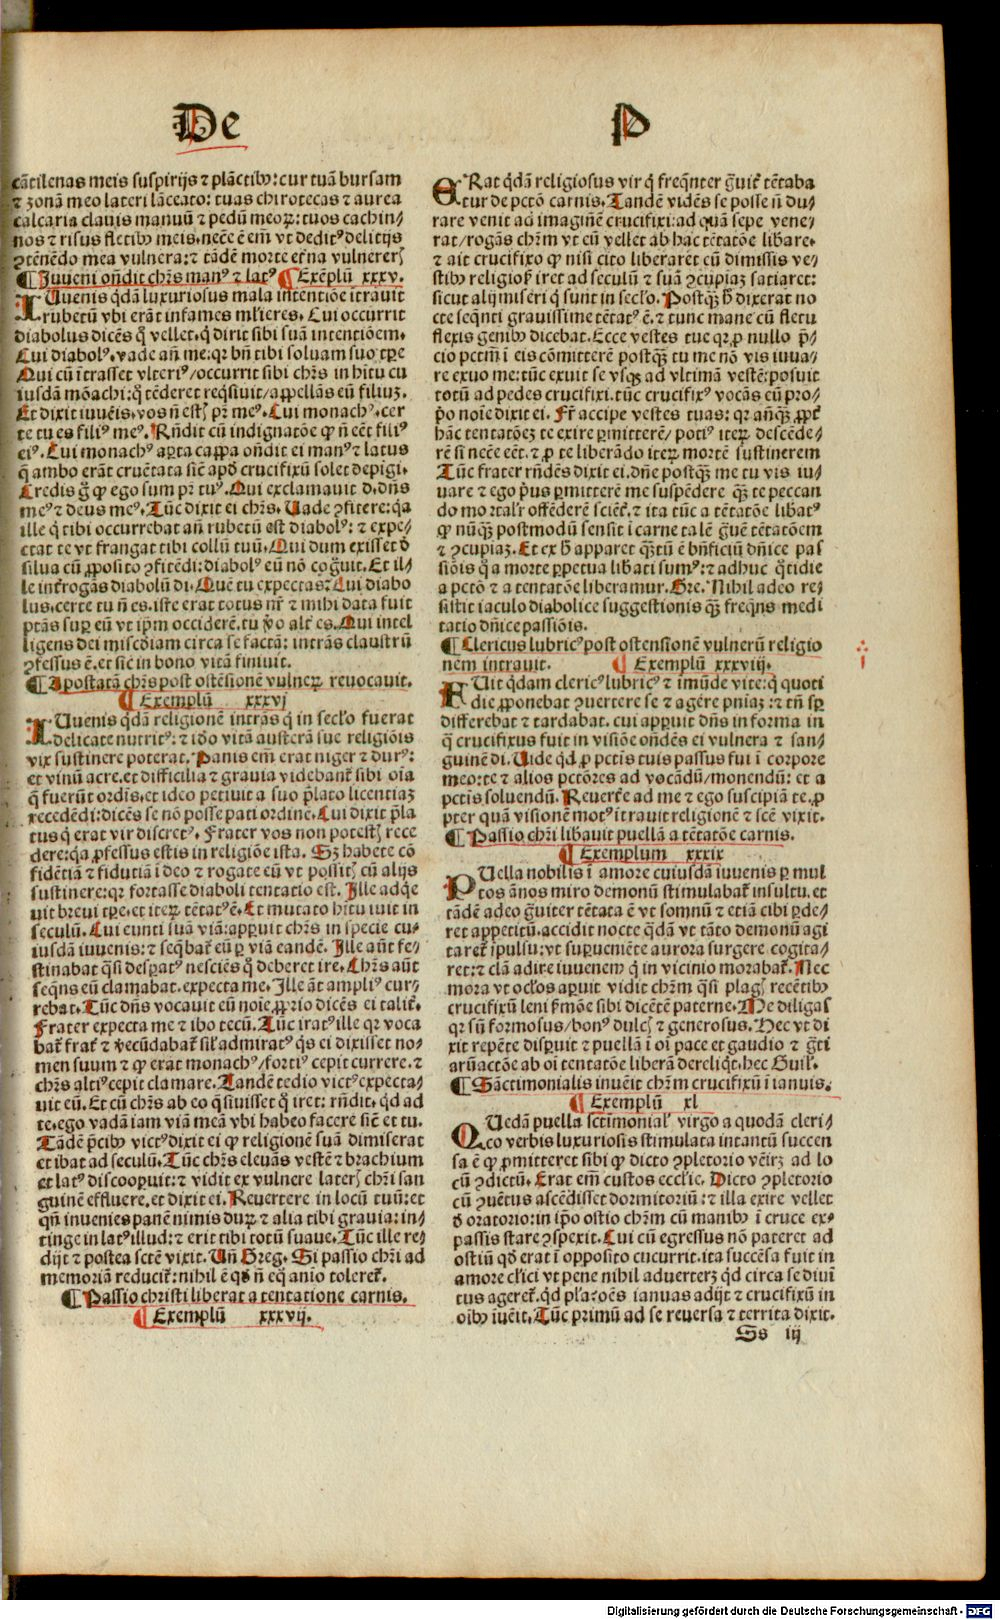 De P
cātilenas meis suspirijs ⁊ plāctibꝰ: cur tuā bursam
⁊ zonā meo lateri lāceato: tuas chirotecas ⁊ aurea
calcaria clauis manuū ⁊ pedū meoꝝ: tuos cachin⸗
nos ⁊ risus fletibꝰ meis. necē ē em̄ vt dedit⁹ delitijs
ꝯtēnēdo mea vulnera: ⁊ tādē morte et̄na vulnererꝭ
¶ Juueni on̄dit chrs̄ man⁹ ⁊ lat⁹ ¶ Exēplū xxxv.
IUuenis qdā luxuriosus mala intentiōe itrauit
rubetū vbi erāt infames ml̓ieres. Cui occurrit
diabolus dicēs qͦ vellet. qͥ dixit sibi suā intentiōem.
Cui diabol⁹. vade an̄ me: qꝛ bn̄ tibi soluam suo tꝑe
Qui cū ītrasset vlteri⁹/ occurrit sibi chrs̄ in hitu cu
iusdā mōachi: qͦ tēderet reqͥsiuit/ appellās eū filiuꝫ.
Et dixit iuuēis. vos n̄ estꝭ pr̄ me⁹. Cui monach⁹. cer
te tu es fili⁹ me⁹. Rn̄dit cū indignatōe ꝙ n̄ eēt fili⁹
ei⁹. Cui monach⁹ aꝑta cappa on̄dit ei man⁹ ⁊ latus
q̄ ambo erāt cruētata sic̄ apd̓ crucifixū solet depigi.
Credis gͦ ꝙ ego sum pr̄ tu⁹. Qui exclamauit d. dn̄s
me⁹ ⁊ deus me⁹. Tūc dixit ei chrs̄. Uade ꝯfitere: qa
ille qͥ tibi occurrebat an̄ rubetū est diabol⁹: ⁊ expe⸗
ctat te vt frangat tibi collū tuū. Qui dum exisset d̓
silua cū ꝓposito ꝯfitēdi: diabol⁹ eū nō cogͦuit. Et il⸗
le int̓rogās diabolū di. Quē tu expectas: Cui diabo
lus. certe tu n̄ es. iste erat totus nr̄ ⁊ mihi data fuit
ptās suꝑ eū vt ip̄m occiderē. tu v̓o alt̓ es. Qui intel
ligens dei miscd̓iam circa se factā: intrās claustrū
ꝯfessus ē. et sic̄ in bono vitā finiuit.
¶ Apostatā chrs̄ post ostēsionē vulneꝝ reuocauit.
¶ Exemplū xxxvj
IUuenis qdā religionē intrās qͥ in secl̓o fuerat
delicate nutrit⁹: ⁊ iō vitā austerā sue religiōis
vix sustinere poterat. Panis em̄ erat niger ⁊ dur⁹:
et vinū acre. et difficilia ⁊ grauia videbant̉ sibi oīa
q̄ fuerūt ordīs. et ideo petiuit a suo p̄lato licentiaꝫ
recedēdi: dicēs se nō posse pati ordinē. Cui dixit p̄la
tus qͥ erat vir discret⁹. Frater vos non potestꝭ rece
dere: qa ꝓfessus estis in religiōe ista. Sꝫ habete cō
fidētiā ⁊ fidutiā ī deo ⁊ rogate eū vt possitꝭ cū alijs
sustinere: qꝛ fortasse diaboli tentatio est. Ille adqͥe
uit breui tꝑe. et iteꝝ tētat⁹ ē. Et mutato hītu iuit in
seculū. Cui eunti suā viā: apparuit chrs̄ in specie cu⸗
iusdā iuuenis: ⁊ seqbat̉ eū ꝑ viā eandē. Ille aūt fe⸗
stinabat qͣsi despat⁹ nesciēs qͦ deberet ire. Chrs̄ aūt
seqn̄s eū clamabat. expecta me. Ille āt ampli⁹ cur⸗
rebat. Tūc dn̄s vocauit eū noīe ꝓprio dicēs ei talit̓.
Frater expecta me ⁊ ibo tecū. Tūc irat⁹ ille qꝛ voca
bat̉ frat̓ ⁊ v̓ecūdabat̉ sil̓ admirat⁹ qͥs ei dixisset no⸗
men suum ⁊ ꝙ erat monach⁹/ forti⁹ cepit currere. ⁊
chrs̄ alti⁹ cepit clamare. Tandē tedio vict⁹ expecta⸗
uit eū. Et cū chrs̄ ab eo qͥsiuisset qͦ iret: rn̄dit. qd ad
te. ego vadā iam viā meā vbi habeo facere sic̄ et tu.
Tādē p̄cibꝰ vict⁹ dixit ei ꝙ religionē suā dimiserat
et ibat ad seculū. Tūc chrs̄ eleuās vestē ⁊ brachium
et lat⁹ discooꝑuit: ⁊ vidit ex vulnere laterꝭ chr̄i san
guinē effluere. et dixit ei. Reuertere in locū tuū: et
qn̄ inuenies panē nimis duꝝ ⁊ alia tibi grauia: in⸗
tinge in lat⁹ illud: ⁊ erit tibi totū suaue. Tūc ille re⸗
dijt ⁊ postea sctē vixit. Un̄ Greg. Si passio chr̄i ad
memoriā reducit̉: nihil ē qd̓ n̄ eqͦ anīo toleret̉.
¶ Passio christi liberat a tentatione carnis.
¶ Exemplū xxxvij.
ERat qdā religiosus vir qͥ freqn̄ter gͣuit̓ tētaba
tur de pctō carnis. Tandē vidēs se posse n̄ du⸗
rare venit ad imaginē crucifixi: ad quā sepe vene⸗
rat/ rogās chrm̄ vt eū vellet ab hac tētatōe libare.
⁊ ait crucifixo ꝙ nisi cito liberaret eū dimissis ve⸗
stibꝰ religiosꝭ iret ad seculū ⁊ suā ꝯcupiaꝫ satiaret:
sicut alij miseri qͥ sunt in secl̓o. Postqꝫ h̓ dixerat no
cte seqn̄ti grauissime tētat⁹ ē. ⁊ tunc mane cū fletu
flexis genibꝰ dicebat. Ecce vestes tue qꝛ ꝓ nullo p̄⸗
cio petīm ī eis cōmitterē postqꝫ tu me nō vis iuua⸗
re exuo me: tūc exuit se vsqꝫ ad vltimā vestē: posuit
totū ad pedes crucifixi. tūc crucifix⁹ vocās eū pro⸗
p̓o noīe dixit ei. Fr̄ accipe vestes tuas: qꝛ anqꝫ ꝓpt̓
hāc tentatōeꝫ te exire ꝑmitterē/ poti⁹ iteꝝ descēde⸗
rē si necē eēt. ⁊ ꝓ te liberādo iteꝝ mortē sustinerem
Tūc frater rn̄dēs dixit ei. dn̄e postqꝫ me tu vis iu⸗
uare ⁊ ego p̓us ꝑmitterē me suspēdere qꝫ te peccan
do mortal̓r offēderē sciēt̓. ⁊ ita tūc a tētatōe libat⁹
ꝙ nūqꝫ postmodū sensit ī carne talē gͣuē tētatōem
⁊ ꝯcupiaꝫ. Et ex h̓ apparet qꝫtū ē bn̄ficiū dn̄ice pas
siōis qͣ a morte ꝑpetua libati sum⁹: ⁊ adhuc qͦtidie
a pctō ⁊ a tentatōe liberamur. Gre. Nihil adeo re⸗
sistit iaculo diabolice suggestionis qꝫ freqn̄s medi
tatio dn̄ice passiōis.
¶ Clericus lubric⁹ post ostensionē vulnerū religio
nem intrauit. ¶ Exemplū xxxviij.
FUit qdam cleric⁹ lubric⁹ ⁊ imūde vite: qͥ quoti
die ꝓponebat ꝯuertere se ⁊ agere pn̄iaꝫ: ⁊ tn̄ sꝑ
differebat ⁊ tardabat. cui apparuit dn̄s in forma in
qͣ crucifixus fuit in visiōe on̄dēs ei vulnera ⁊ san⸗
guinē di. Uide qd̓ ꝓ pctīs tuis passus fui ī corpore
meo: te ⁊ alios pctōres ad vocādū/ monendū: et a
pctīs soluendū. Reuert̓e ad me ⁊ ego suscipiā te. ꝓ
pter quā visionē mot⁹ itrauit religionē ⁊ scē vixit.
¶ Passio chr̄i libauit puellā a tētatōe carnis.
¶ Exemplum xxxix
PUella nobilis ī amore cuiusdā iuuenis ꝑ mul
tos ānos miro demonū stimulabat̉ insultu. et
tādē adeo gͣuiter tētata ē vt somnū ⁊ etiā cibi ꝑde⸗
ret appetitū. accidit nocte qdā vt tāto demonū agi
taret̉ īpulsu: vt suꝑueniēte aurora surgere cogita⸗
ret: ⁊ clā adire iuuenem qͥ in vicinio morabat̉. Nec
mora vt ocl̓os aꝑuit vidit chrm̄ qͣsi plagꝭ recētibꝰ
crucifixū leni s̓mōe sibi dicētē paterne. Me diligas
qꝛ sū formosus/ bon⁹ dulcꝭ ⁊ generosus. Hec vt di
xit repēte disparuit ⁊ puellā ī oī pace et gaudio ⁊ gͣti
arū actōe ab oī tentatōe liberā dereliqͥt. hec Guil̓.
¶ Sāctimonialis inuēit chrm̄ crucifixū ī ianuis.
¶ Exemplū xl
QUedā puella sctīmonial̓ virgo a quodā cleri⸗
co verbis luxuriosis stimulata intantū succen
sa ē ꝙ ꝓmitteret sibi ꝙ dicto ꝯpletorio vēiꝫ ad lo
cū ꝯdictū. Erat em̄ custos ecclīe. Dicto ꝯpletorio
cū ꝯuētus ascēdisset dormitoriū: ⁊ illa exire vellet
d̓ oratorio: in ip̄o ostio chrm̄ cū manibꝰ ī cruce ex⸗
passis stare ꝯspexit. Cui cū egressus nō pateret ad
ostiū qd̓ erat ī opposito cucurrit. ita succēsa fuit in
amore cl̓ici vt pene nihil aduerteꝫ qd circa se diuī
tus ageret̉. qd plͣa: oēs ianuas adijt ⁊ crucifixū in
oībꝰ īuēit. Tūc primū ad se reuersa ⁊ territa dixit.
Ss iij
Digitalisierung gefördert durch die Deutsche Forschungsgemeinschaft - DFG